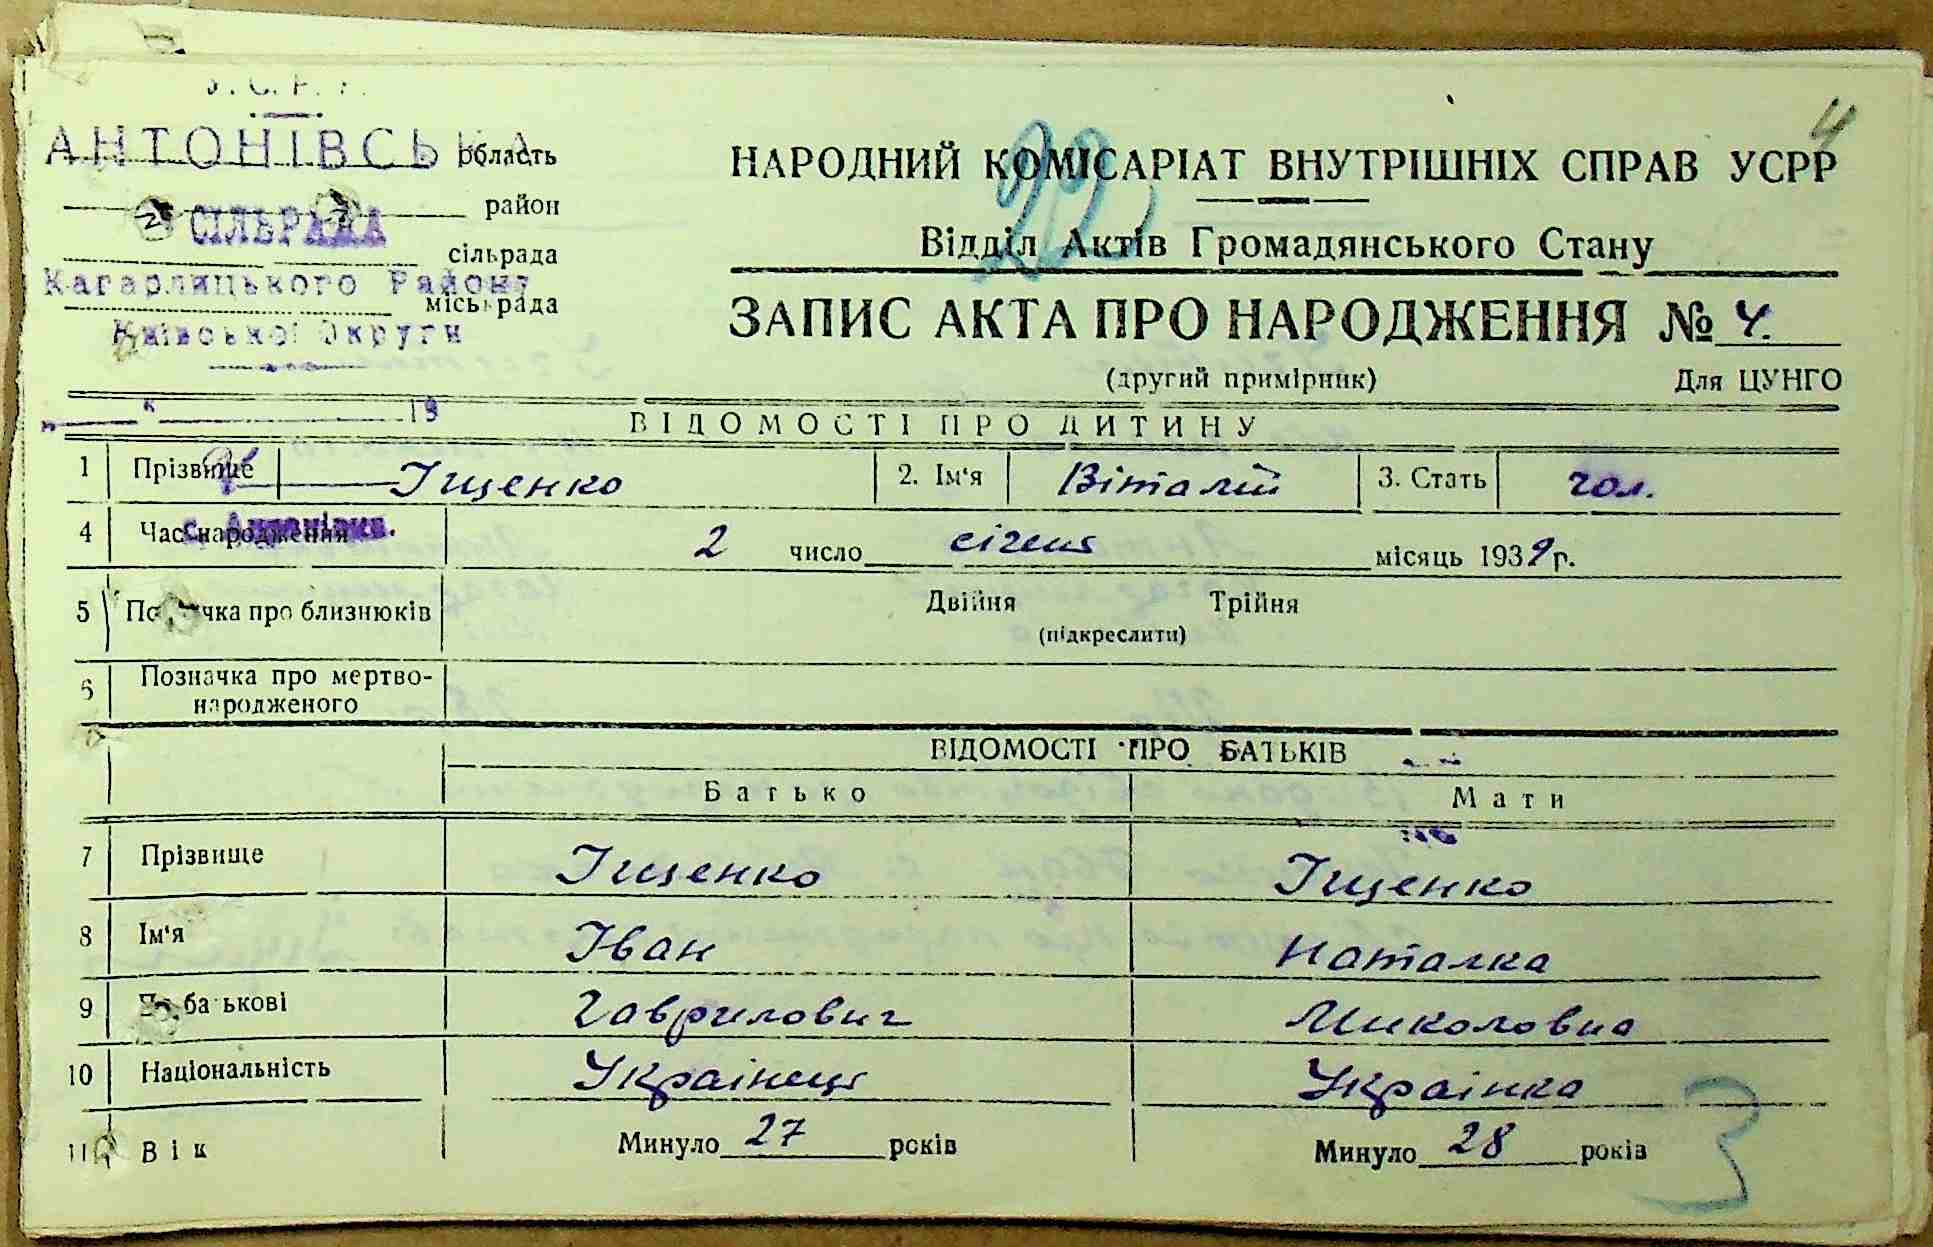 У.С.Р.Р.
АНТОНІВСЬКА область
район
СІЛЬРАДА
сільрада
Кагарлицького Району
міськрада
Київської Округи
" " 19
с. Антонівка.
4
22
НАРОДНИЙ КОМІСАРІАТ ВНУТРІШНІХ СПРАВ УСРР
Відділ Актів Громадянського Стану
ЗАПИС АКТА ПРО НАРОДЖЕННЯ № 4.
(другий примірник) Для ЦУНГО
ВІДОМОСТІ ПРО ДИТИНУ
1 Прізвище Іщенко 2. Ім'я Віталій 3. Стать чол.
4 Час народження 2 число січень місяць 1939 р.
5 Позначка про близнюків Двійня Трійня
(підкреслити)
6 Позначка про мертво-
народженого
ВІДОМОСТІ ПРО БАТЬКІВ
Батько Мати
7 Прізвище Іщенко Іщенко
8 Ім'я Іван Наталка
9 По батькові Гаврилович Миколовна
10 Національність Українець Українка
11 Вік Минуло 27 років Минуло 28 років
3